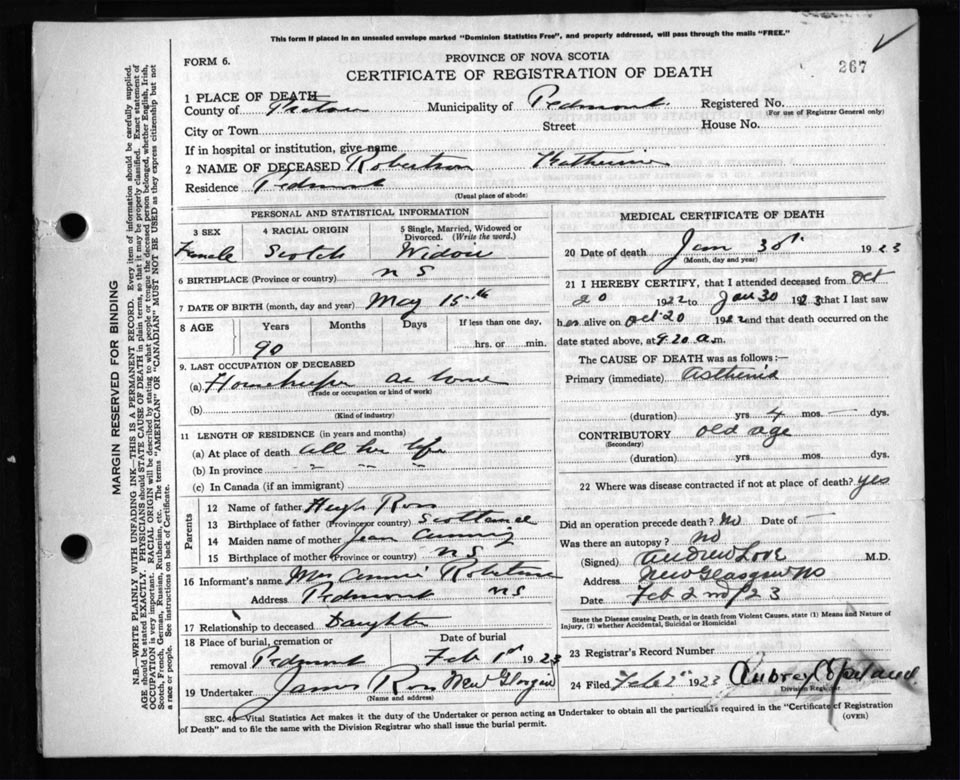 This form if placed in an unsealed envelope marked "Dominion Statistics Free", and properly addressed, will pass through the mails "FREE."
FORM 6.
PROVINCE OF NOVA SCOTIA
367
CERTIFICATE OF REGISTRATION OF DEATH
1 PLACE OF DEATH
County of Pictou Municipality of Piedmont Registered No.
(For use of Registrar General only)
City or Town Street House No.
If in hospital or institution, give name
2 NAME OF DECEASED Robertson Katherine
Residence Piedmont
(Usual place of abode)
PERSONAL AND STATISTICAL INFORMATION
3 SEX 4 RACIAL ORIGIN 5 Single, Married, Widowed or Divorced. (Write the word.)
Female Scotch Widow
6 BIRTHPLACE (Province or country) N S
7 DATE OF BIRTH (month, day and year) May 15th
8 AGE Years Months Days If less than one day,
90 hrs. or min.
9. LAST OCCUPATION OF DECEASED
(a) Housekeeper at home
(Trade or occupation or kind of work)
(b)
(Kind of industry)
11 LENGTH OF RESIDENCE (in years and months)
(a) At place of death all her life
(b) In province " " "
(c) In Canada (if an immigrant)
Parents
12 Name of father Hugh Ross
13 Birthplace of father (Province or country) Scotland
14 Maiden name of mother Jean
15 Birthplace of mother (Province or country) N S
16 Informant's name Mrs Annie Robertson
Address Piedmont N S
17 Relationship to deceased Daughter
18 Place of burial, cremation or Date of burial
removal Piedmont Feb 1st 1923
19 Undertaker James Ross New Glasgow
(Name and address)
MEDICAL CERTIFICATE OF DEATH
20 Date of death Jan 30th 1923
(Month, day and year)
21 I HEREBY CERTIFY, that I attended deceased from Oct
20 1922 to Jan 30 1923 that I last saw
her alive on Oct 20 1922 and that death occurred on
date stated above, at 9.20 a.m.
The CAUSE OF DEATH was as follows:—
Primary (immediate) Asthenia
(duration) yrs 4 mos. — dys.
CONTRIBUTORY old age
(Secondary)
(duration) yrs. mos. dys.
22 Where was disease contracted if not at place of death? Yes
Did an operation precede death? No Date of —
Was there an autopsy? No
(Signed) Andrew Love M.D.
Address New Glasgow NS
Date Feb 2nd 23
State the Disease causing Death, or in death from Violent Causes, state (1) Means and Nature of Injury, (2) whether Accidental, Suicidal or Homicidal
23 Registrar's Record Number
24 Filed Feb 2 1923 Aubrey
Division Registrar
SEC. 40—Vital Statistics Act makes it the duty of the Undertaker or person acting as Undertaker to obtain all the particulars required in the "Certificate of Registration
of Death" and to file the same with the Division Registrar who shall issue the burial permit. (OVER)
MARGIN RESERVED FOR BINDING
N.B.—WRITE PLAINLY WITH UNFADING INK—THIS IS A PERMANENT RECORD. Every item of information should be carefully supplied.
AGE should be stated EXACTLY. PHYSICIANS should STATE CAUSE OF DEATH in plain terms, so that it may be properly classified. Exact statement of
OCCUPATION is very important. RACIAL ORIGIN will be described by stating to what people or tongue the deceased person belonged, whether English, Irish,
Scotch, French, German, Russian, Ruthenian, etc. The terms "AMERICAN" OR "CANADIAN" MUST NOT BE USED as they express citizenship but not
a race or people. See instructions on back of Certificate.